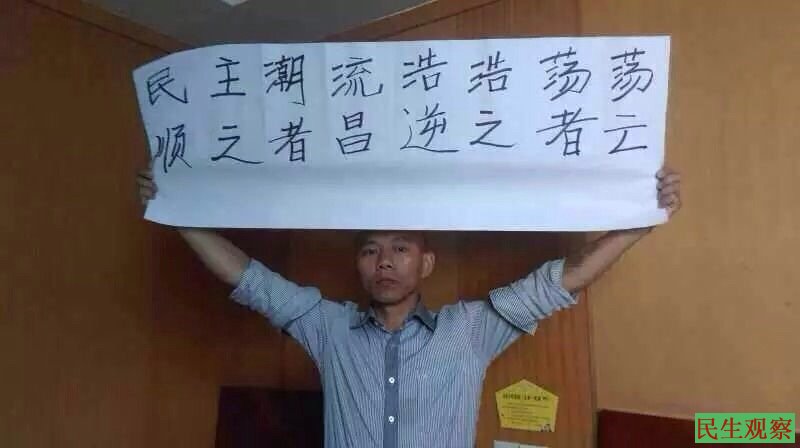 民主潮流浩浩荡荡
顺之者昌逆之者亡
民生观察